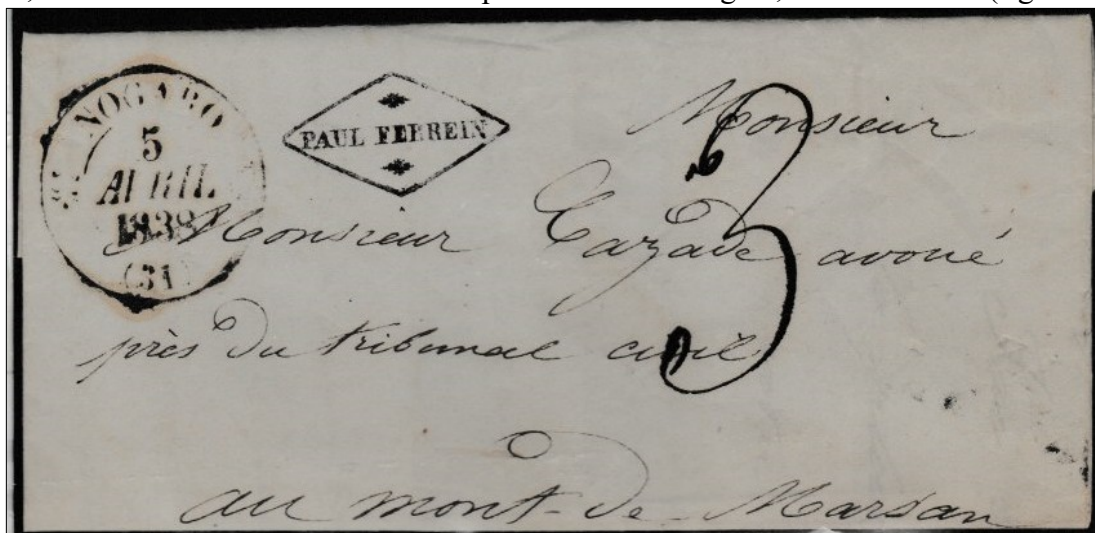 NOGARO
5
AVRIL
1838
(31)
PAUL FERREIN
3
Monsieur
Monsieur Cazade avoué
près du tribunal civil
au mont-de-Marsan